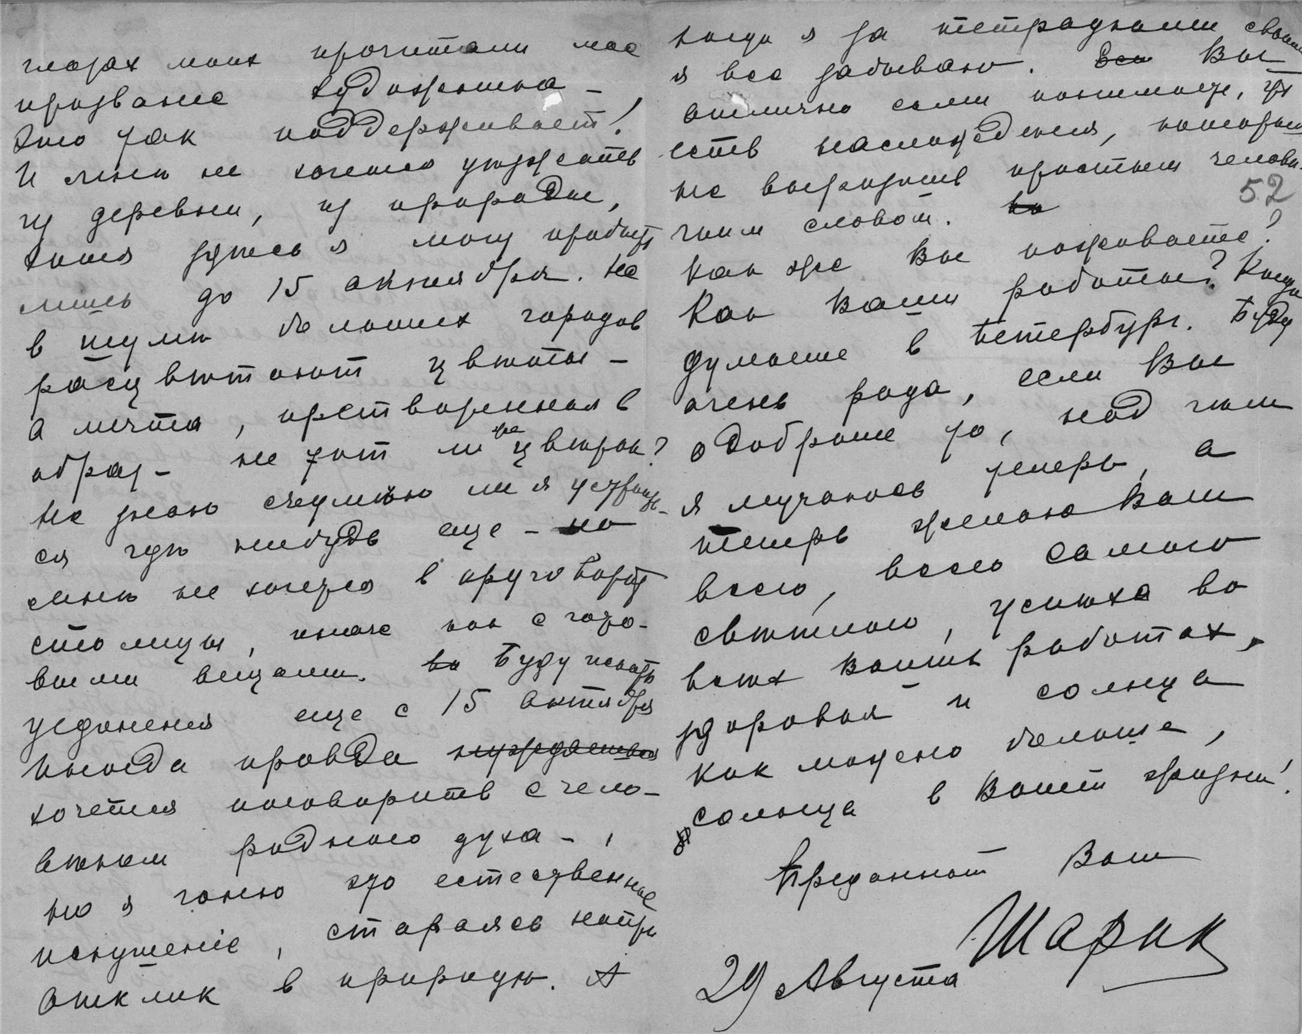 глазах моих прочитали мое
призвание художника –
Это так поддерживает!
И мнѣ не хочется уѣзжать
из деревни, из природы,
хотя здѣсь я могу пробыть
лишь до 15 октября. Не
в шумѣ больших городов
расцвѣтают цвѣты –
а мечта, претворенная в
образ – не тот ли же цвѣток?
Не знаю съумѣю ли я устроить-
ся гдѣ нибудь еще – но
мнѣ не хочется в круговорот
столицы, иначе как с гото-
выми вещами. Буду искать
уединения еще с 15 октября
Иногда правда
хочется поговорить с чело-
вѣком родного духа – ,
но я гоню это естественное
искушенiе, стараясь найти
отклик в природѣ. А
когда я за тетрадками своими
я все забываю. Вы
отлично сами понимаете, что
есть наслажденья, которых
не выразишь простым человѣ-
чьим словом.
52
Как же Вы поживаете?
Как Ваши работы? Когда
думаете в Петербург. Буду
очень рада, если Вы
одобрите то, над чѣм
я мучаюсь теперь, а
теперь желаю Вам
всего, всего самого
свѣтлого, успѣха во
всѣх Ваших работах,
здоровья и солнца
как можно больше,
солнца в Вашей жизни!
Преданный Вам
Шарик
29 Августа